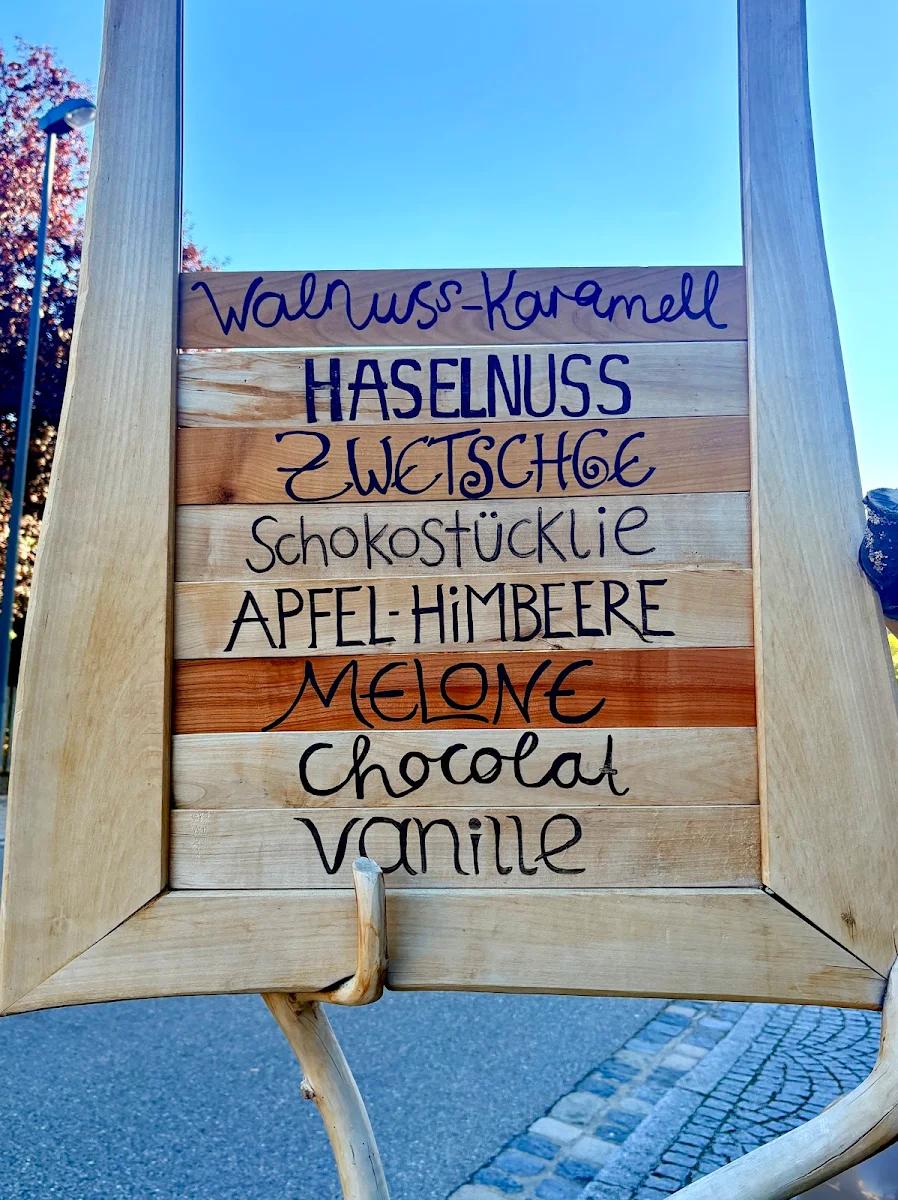 Walnuss-Karamell
HASELNUSS
ZWETSCHGE
Schokostücklie
APFEL-HiMBEERE
MELONE
Chocolat
vanille